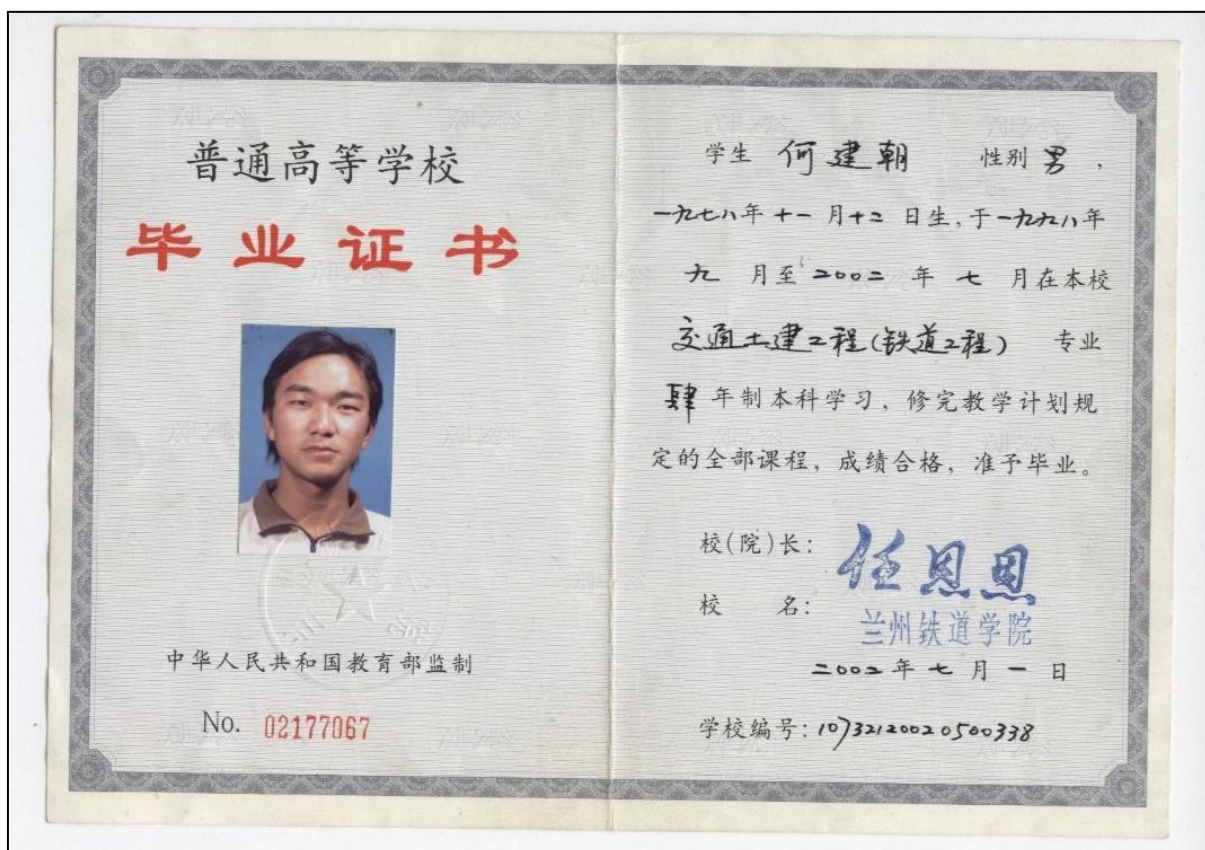 普通高等学校
毕业证书
中华人民共和国教育部监制
No. 02177067
学生 何建朝 性别 男，
一九七八年十一月十二日生，于一九九八年
九月至二〇〇二年七月在本校
交通土建工程（铁道工程） 专业
肆年制本科学习，修完教学计划规
定的全部课程，成绩合格，准予毕业。
校（院）长：任恩恩
校 名：兰州铁道学院
二〇〇二年七月一日
学校编号：10732120020500338